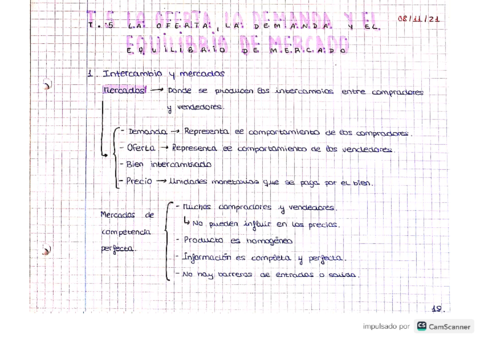 T.5 LA OFERTA, LA DEMANDA Y EL
08/11/21
EQUILIBRIO DE MERCADO
1. Intercambio y mercados
Mercados → Donde se producen los intercambios entre compradores
y vendedores.
- Demanda → Representa el comportamiento de los compradores.
- Oferta → Representa el comportamiento de los vendedores.
- Bien intercambiado
- Precio → Unidades monetarias que se paga por el bien.
Mercados de
competencia
perfecta.
- Muchos compradores y vendedores.
↳ No pueden influir en los precios.
- Producto es homogéneo
- Información es completa y perfecta.
- No hay barreras de entradas o salida.
18.
impulsado por CS CamScanner